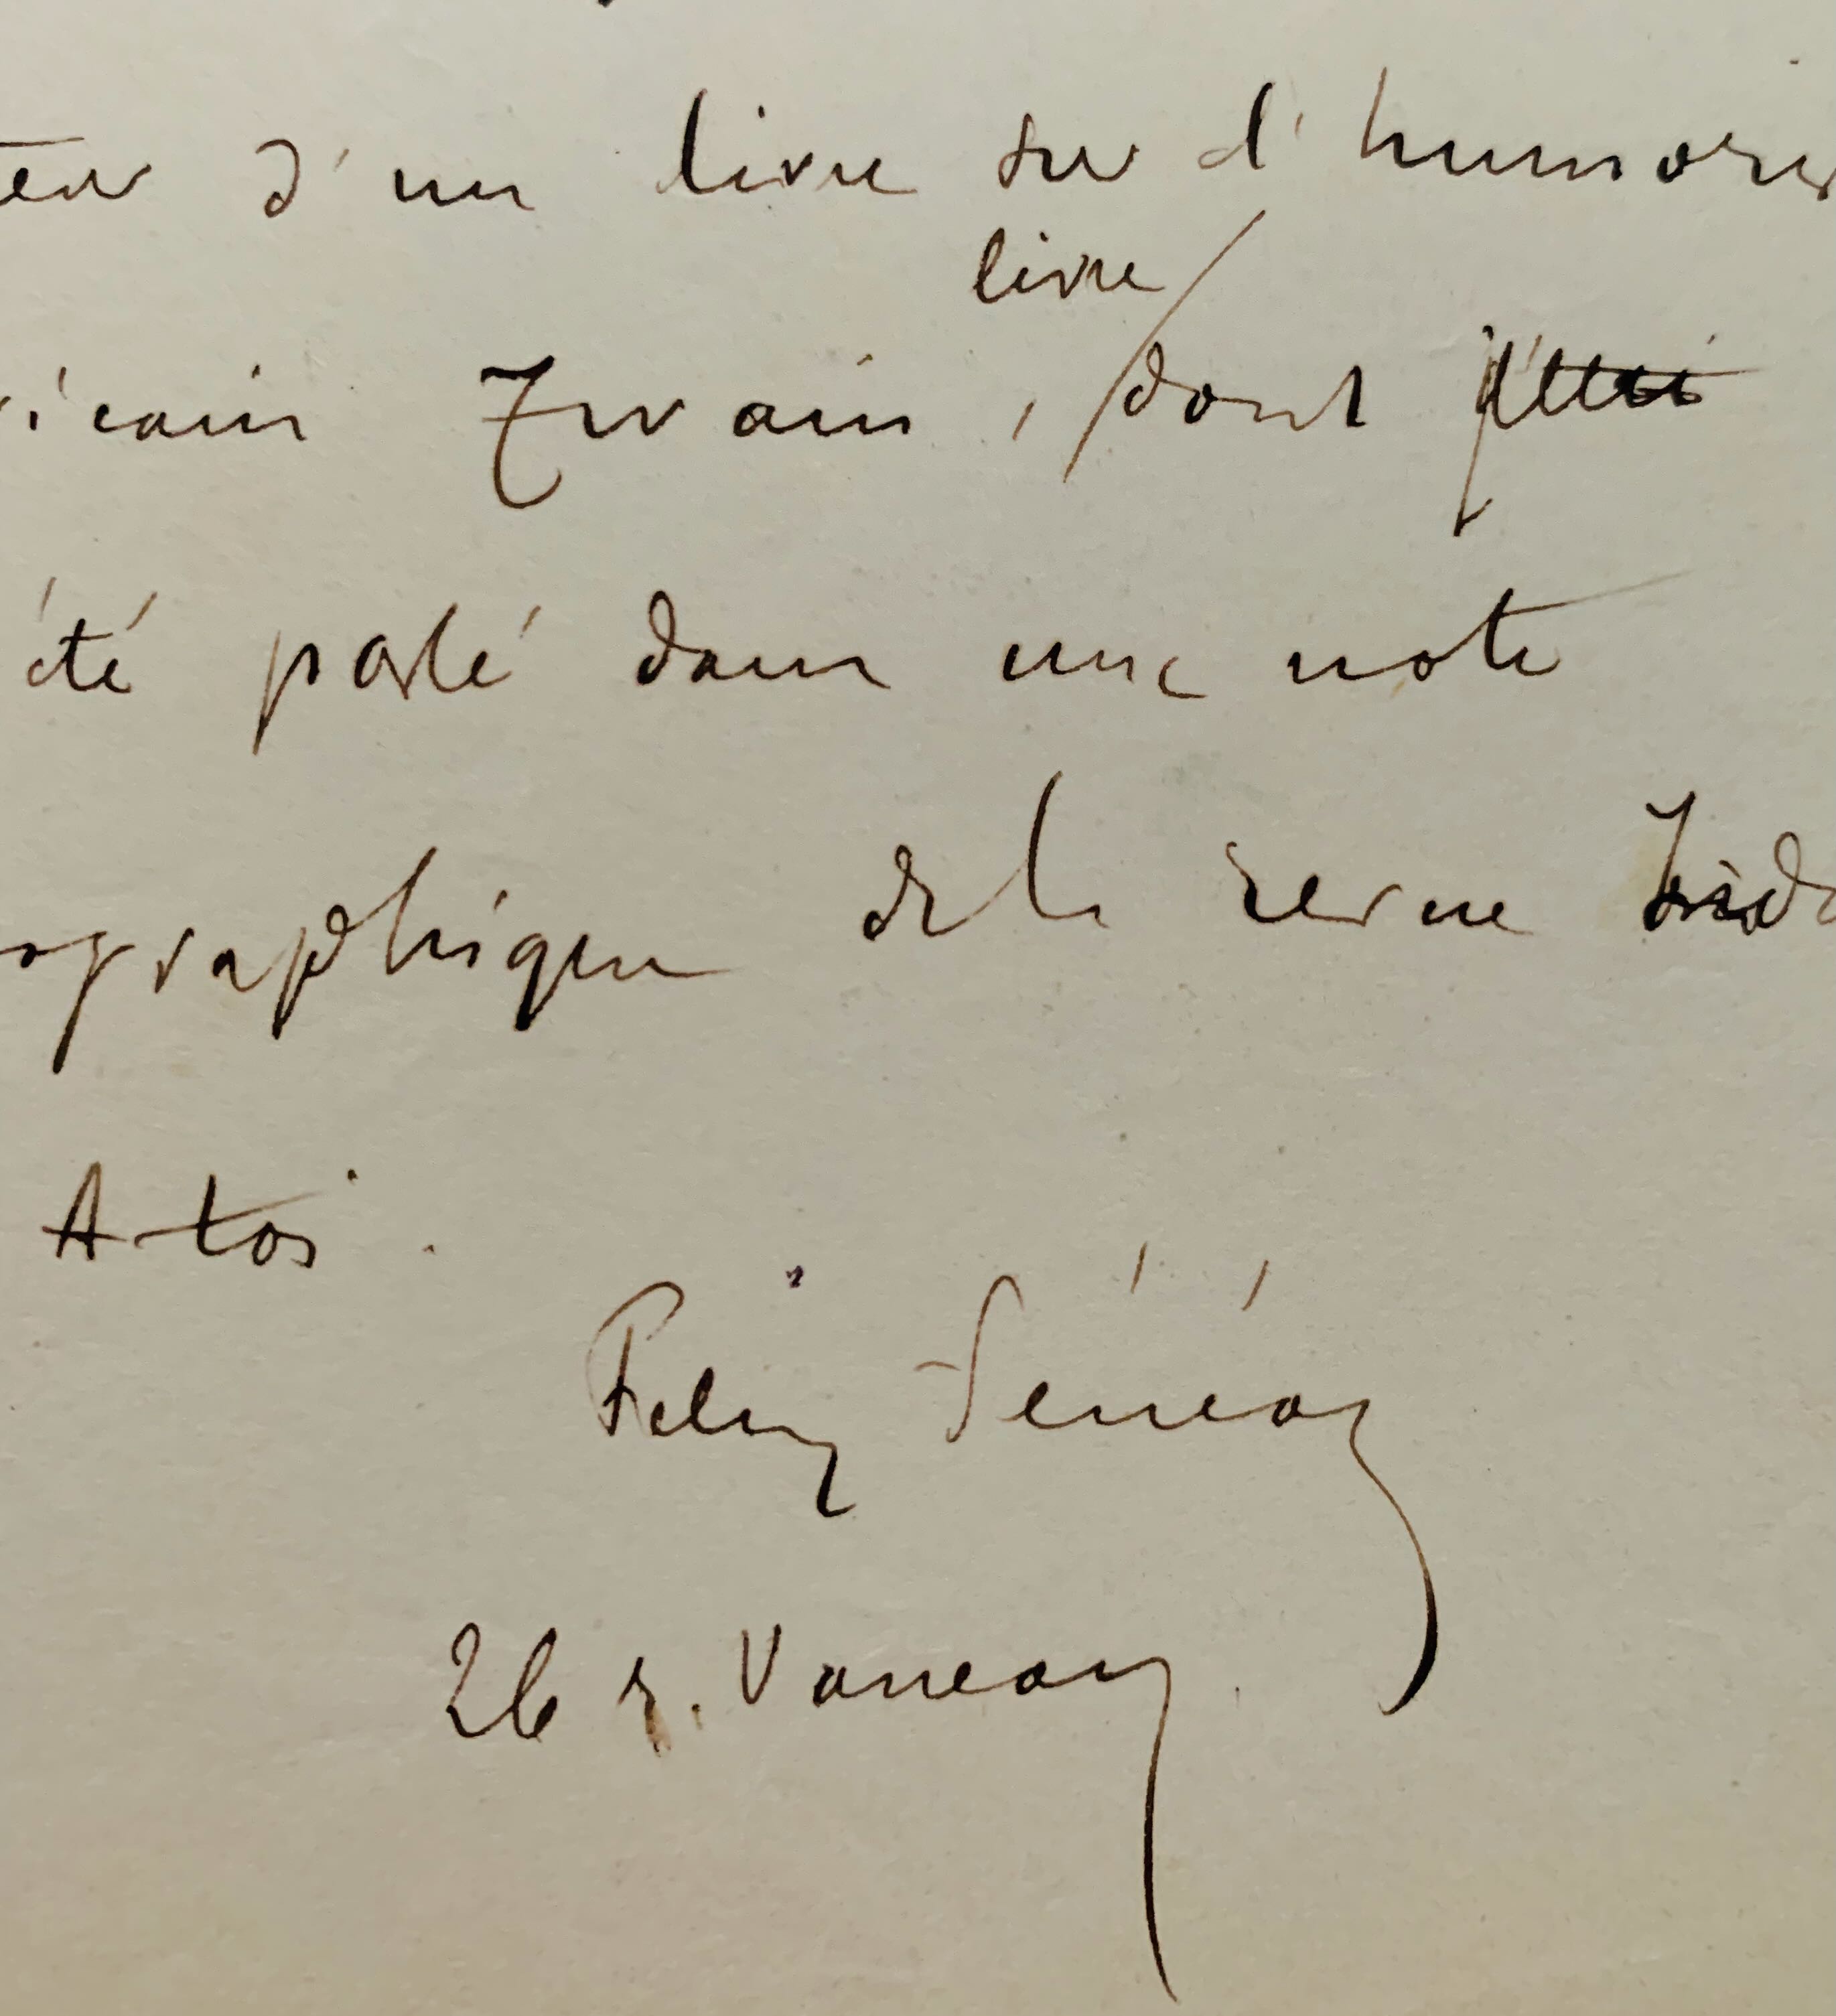 teur d'un livre sur l'humoris
livre
ricain Twain, dont
été parlé dans une note
ographique de la revue Indé
A toi.
Félix Fénéon
26 r. Vaneau